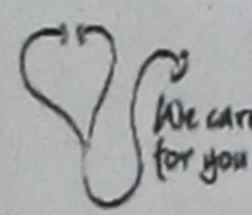 We care
for you